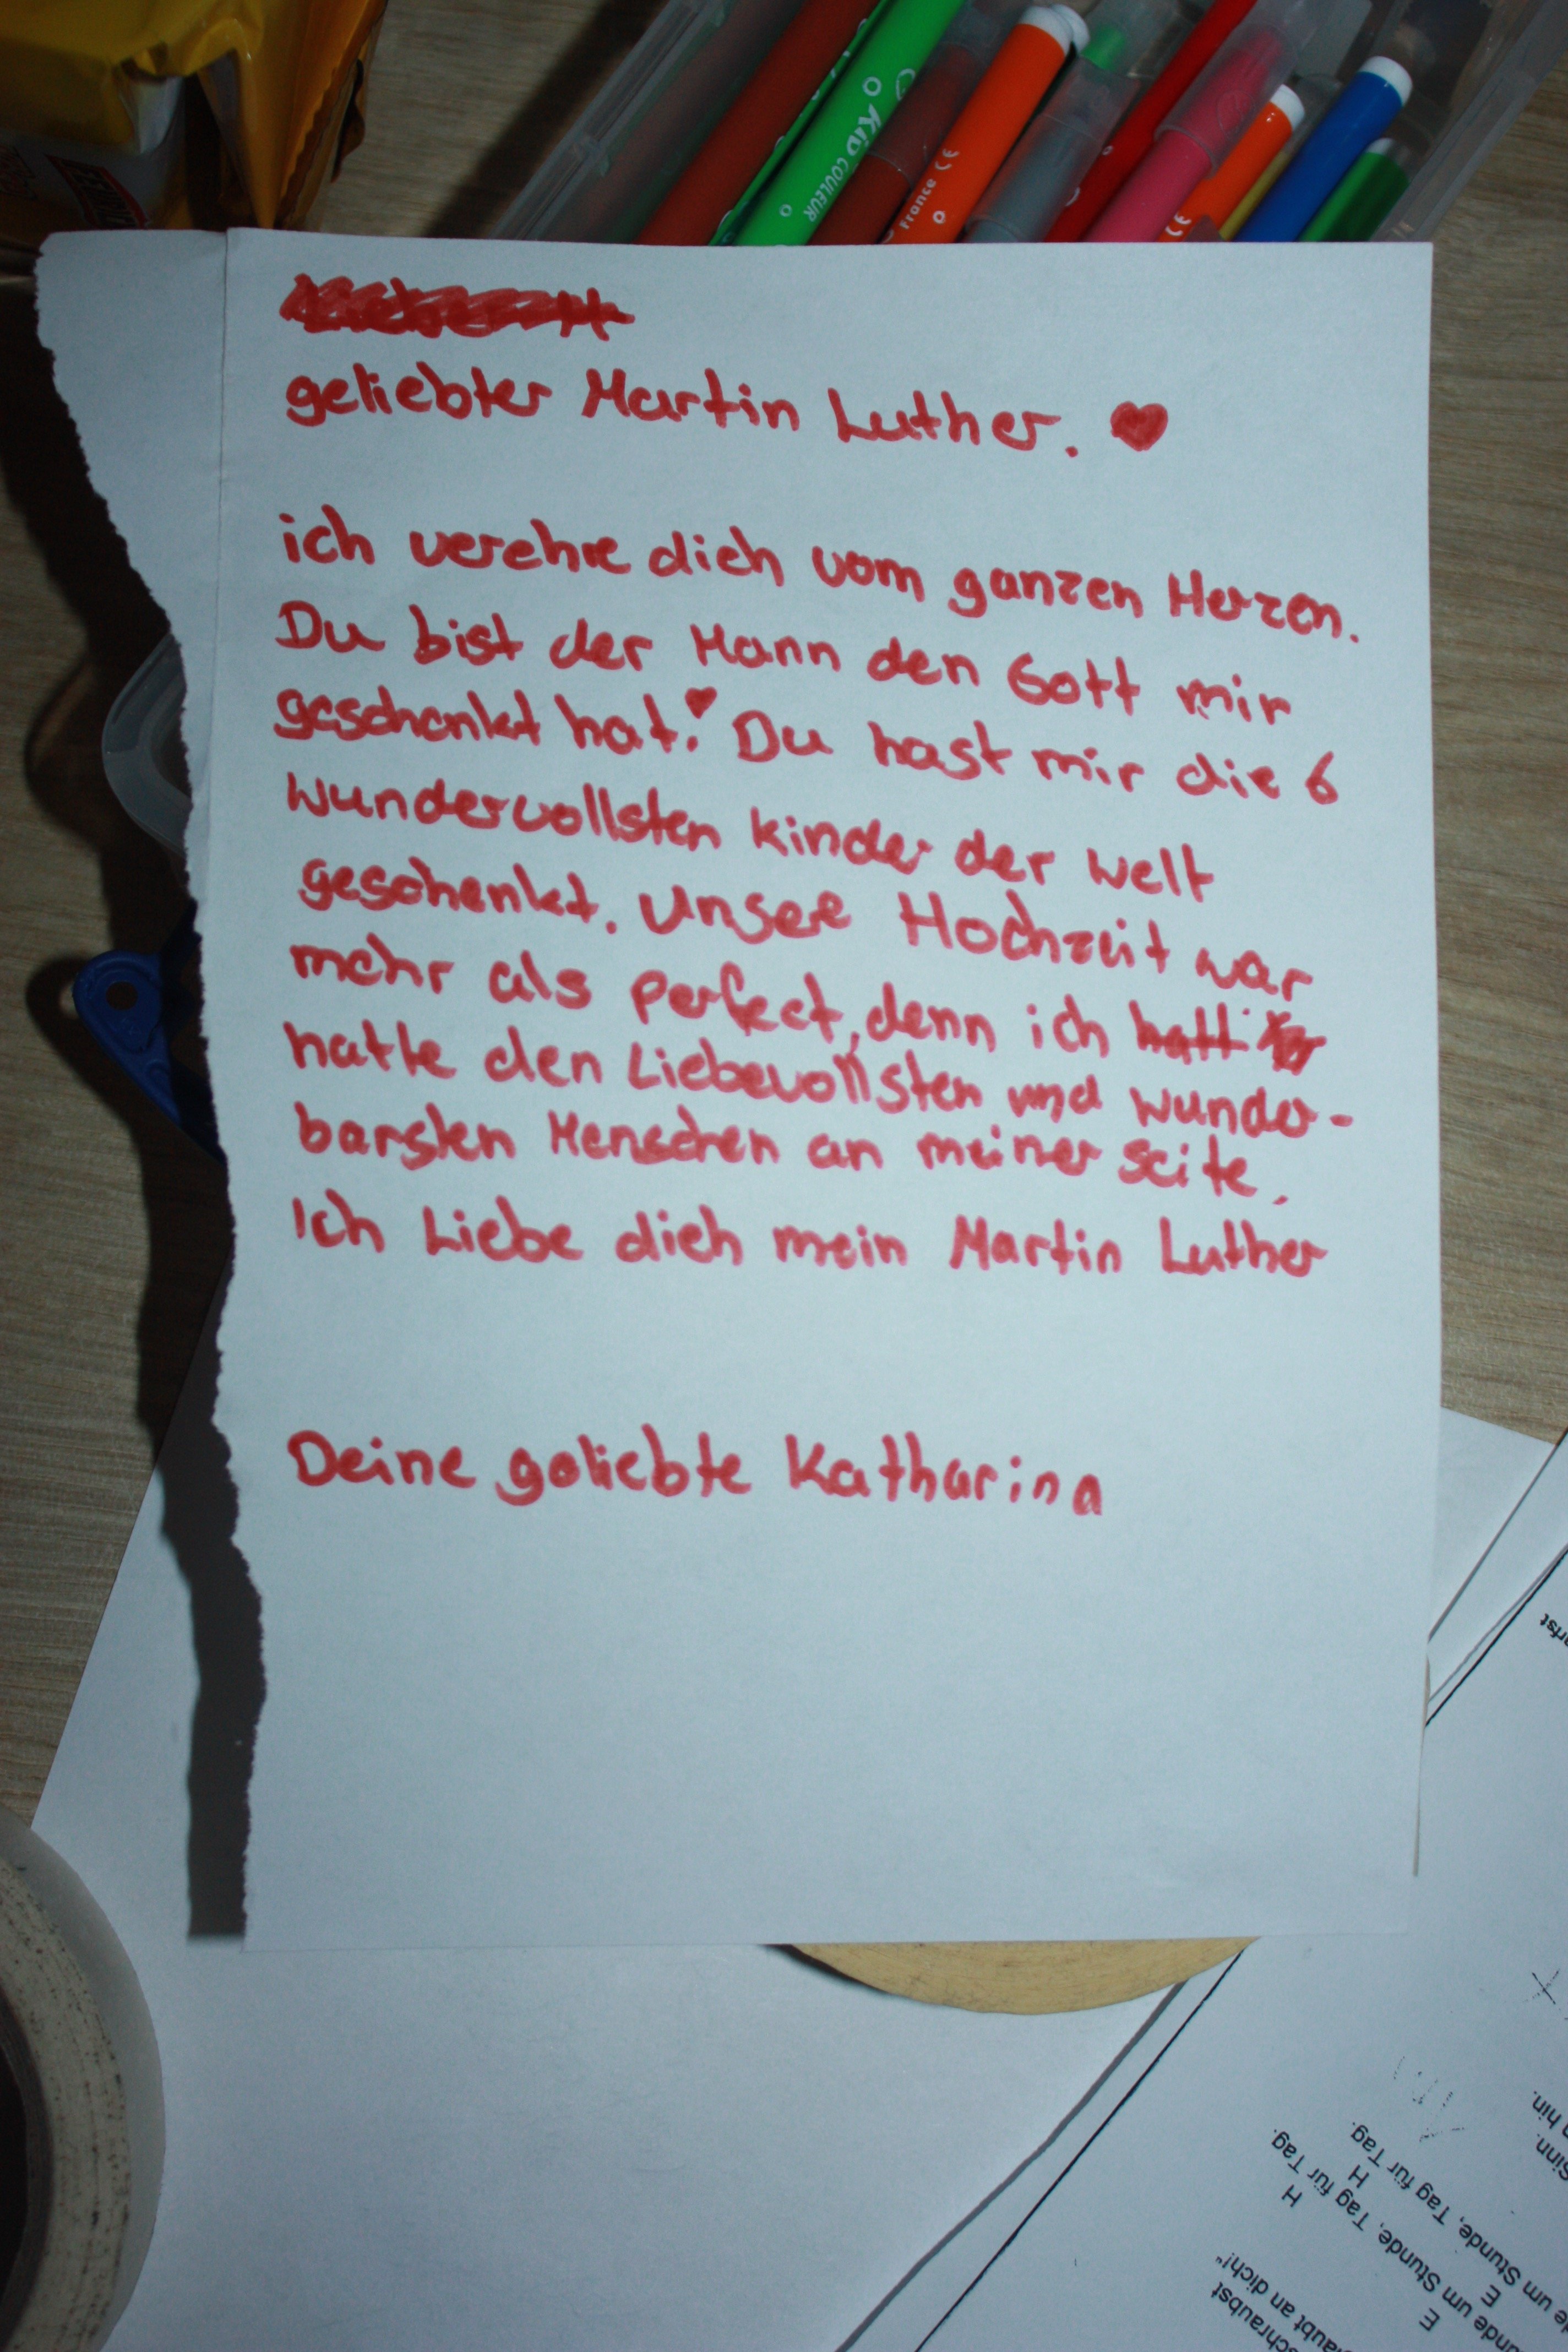 Kid COULEUR
France CE
CE
geliebter Martin Luther. ♥
ich verehre dich vom ganzen Herzen.
Du bist der Mann den Gott mir
geschenkt hat! Du hast mir die 6
wundervollsten kinder der Welt
geschenkt. Unsere Hochzeit war
mehr als perfect, denn ich hatt
hatte den Liebevollsten und wunder-
barsten Menschen an meiner seite.
Ich Liebe dich mein Martin Luther
Deine geliebte Katharina
hin.
Sinn.
um Stunde, Tag für Tag.
H
E
um Stunde, Tag für Tag.
H
E
laubt an dich!"
schraubst